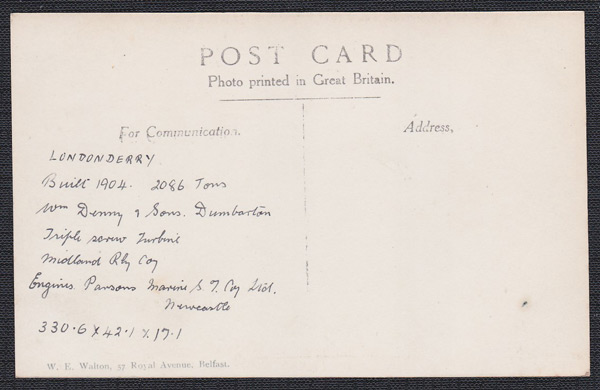 POST CARD
Photo printed in Great Britain.
For Communication.
Address,
LONDONDERRY.
Built 1904. 2086 Tons
Wm Denny & Sons. Dumbarton
Triple screw Turbine
Midland Rly Coy
Engines Parsons Marine S. T. Coy Ltd.
Newcastle
330.6 x 42.1 x 17.1
W. E. Walton, 57 Royal Avenue, Belfast.